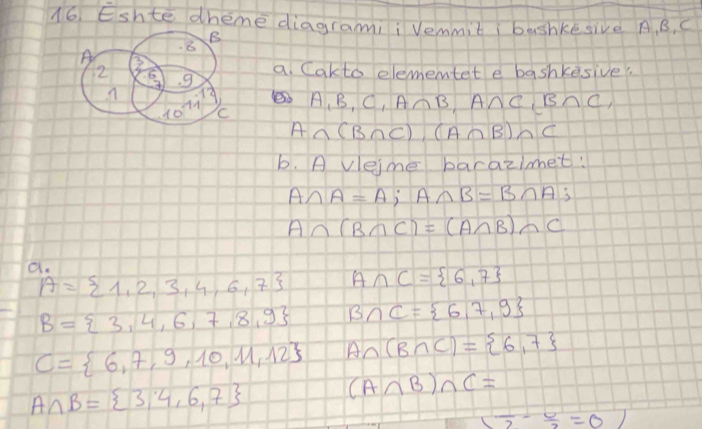 16. Është dhënë diagrami i Vennit i bashkësive A, B, C
B
A
.8
.2
3
6
7
.9
1
.12
11
10
C
a. Cakto elementet e bashkësive:
A, B, C, A∩B, A∩C, B∩C,
A∩(B∩C), (A∩B)∩C
b. A vlejnë barazimet:
A∩A = A; A∩B = B∩A;
A∩(B∩C) = (A∩B)∩C
a.
A = {1, 2, 3, 4, 6, 7}
B = {3, 4, 6, 7, 8, 9}
C = {6, 7, 9, 10, 11, 12}
A∩B = {3, 4, 6, 7}
A∩C = {6, 7}
B∩C = {6, 7, 9}
A∩(B∩C) = {6, 7}
(A∩B)∩C =
= 0)